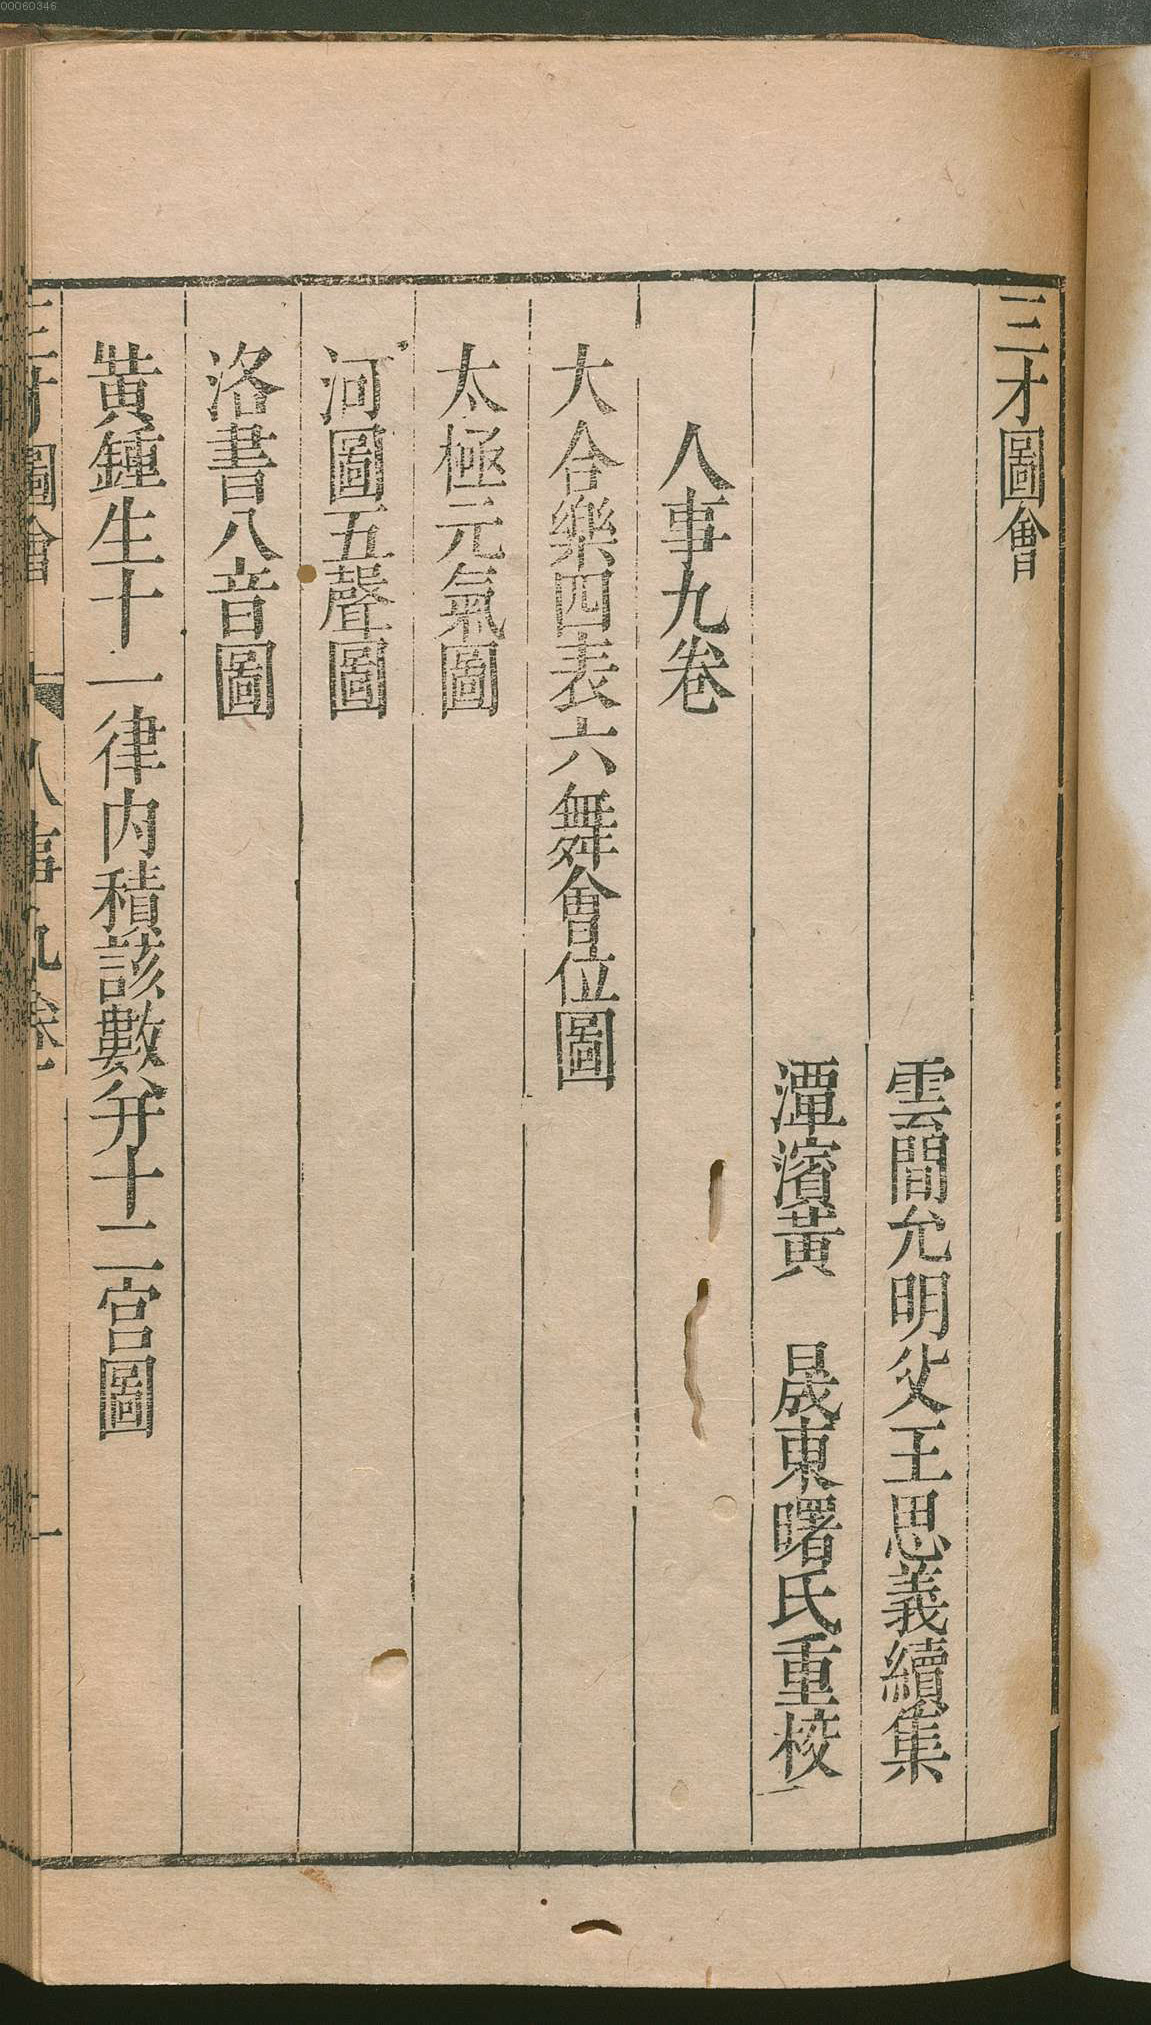 三才圖會
雲間允明父王思義續集
潭濱黃　晟東曙氏重校
人事九卷
大合樂四表六舞會位圖
太極元氣圖
河圖五聲圖
洛書八音圖
黃鍾生十一律內積該數分十二宮圖
三才圖會　人事九卷　一
00060346